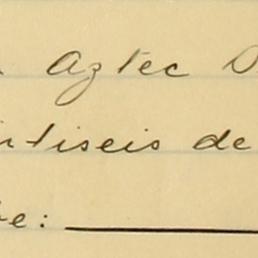 Aztec D
ntiseis de
e: